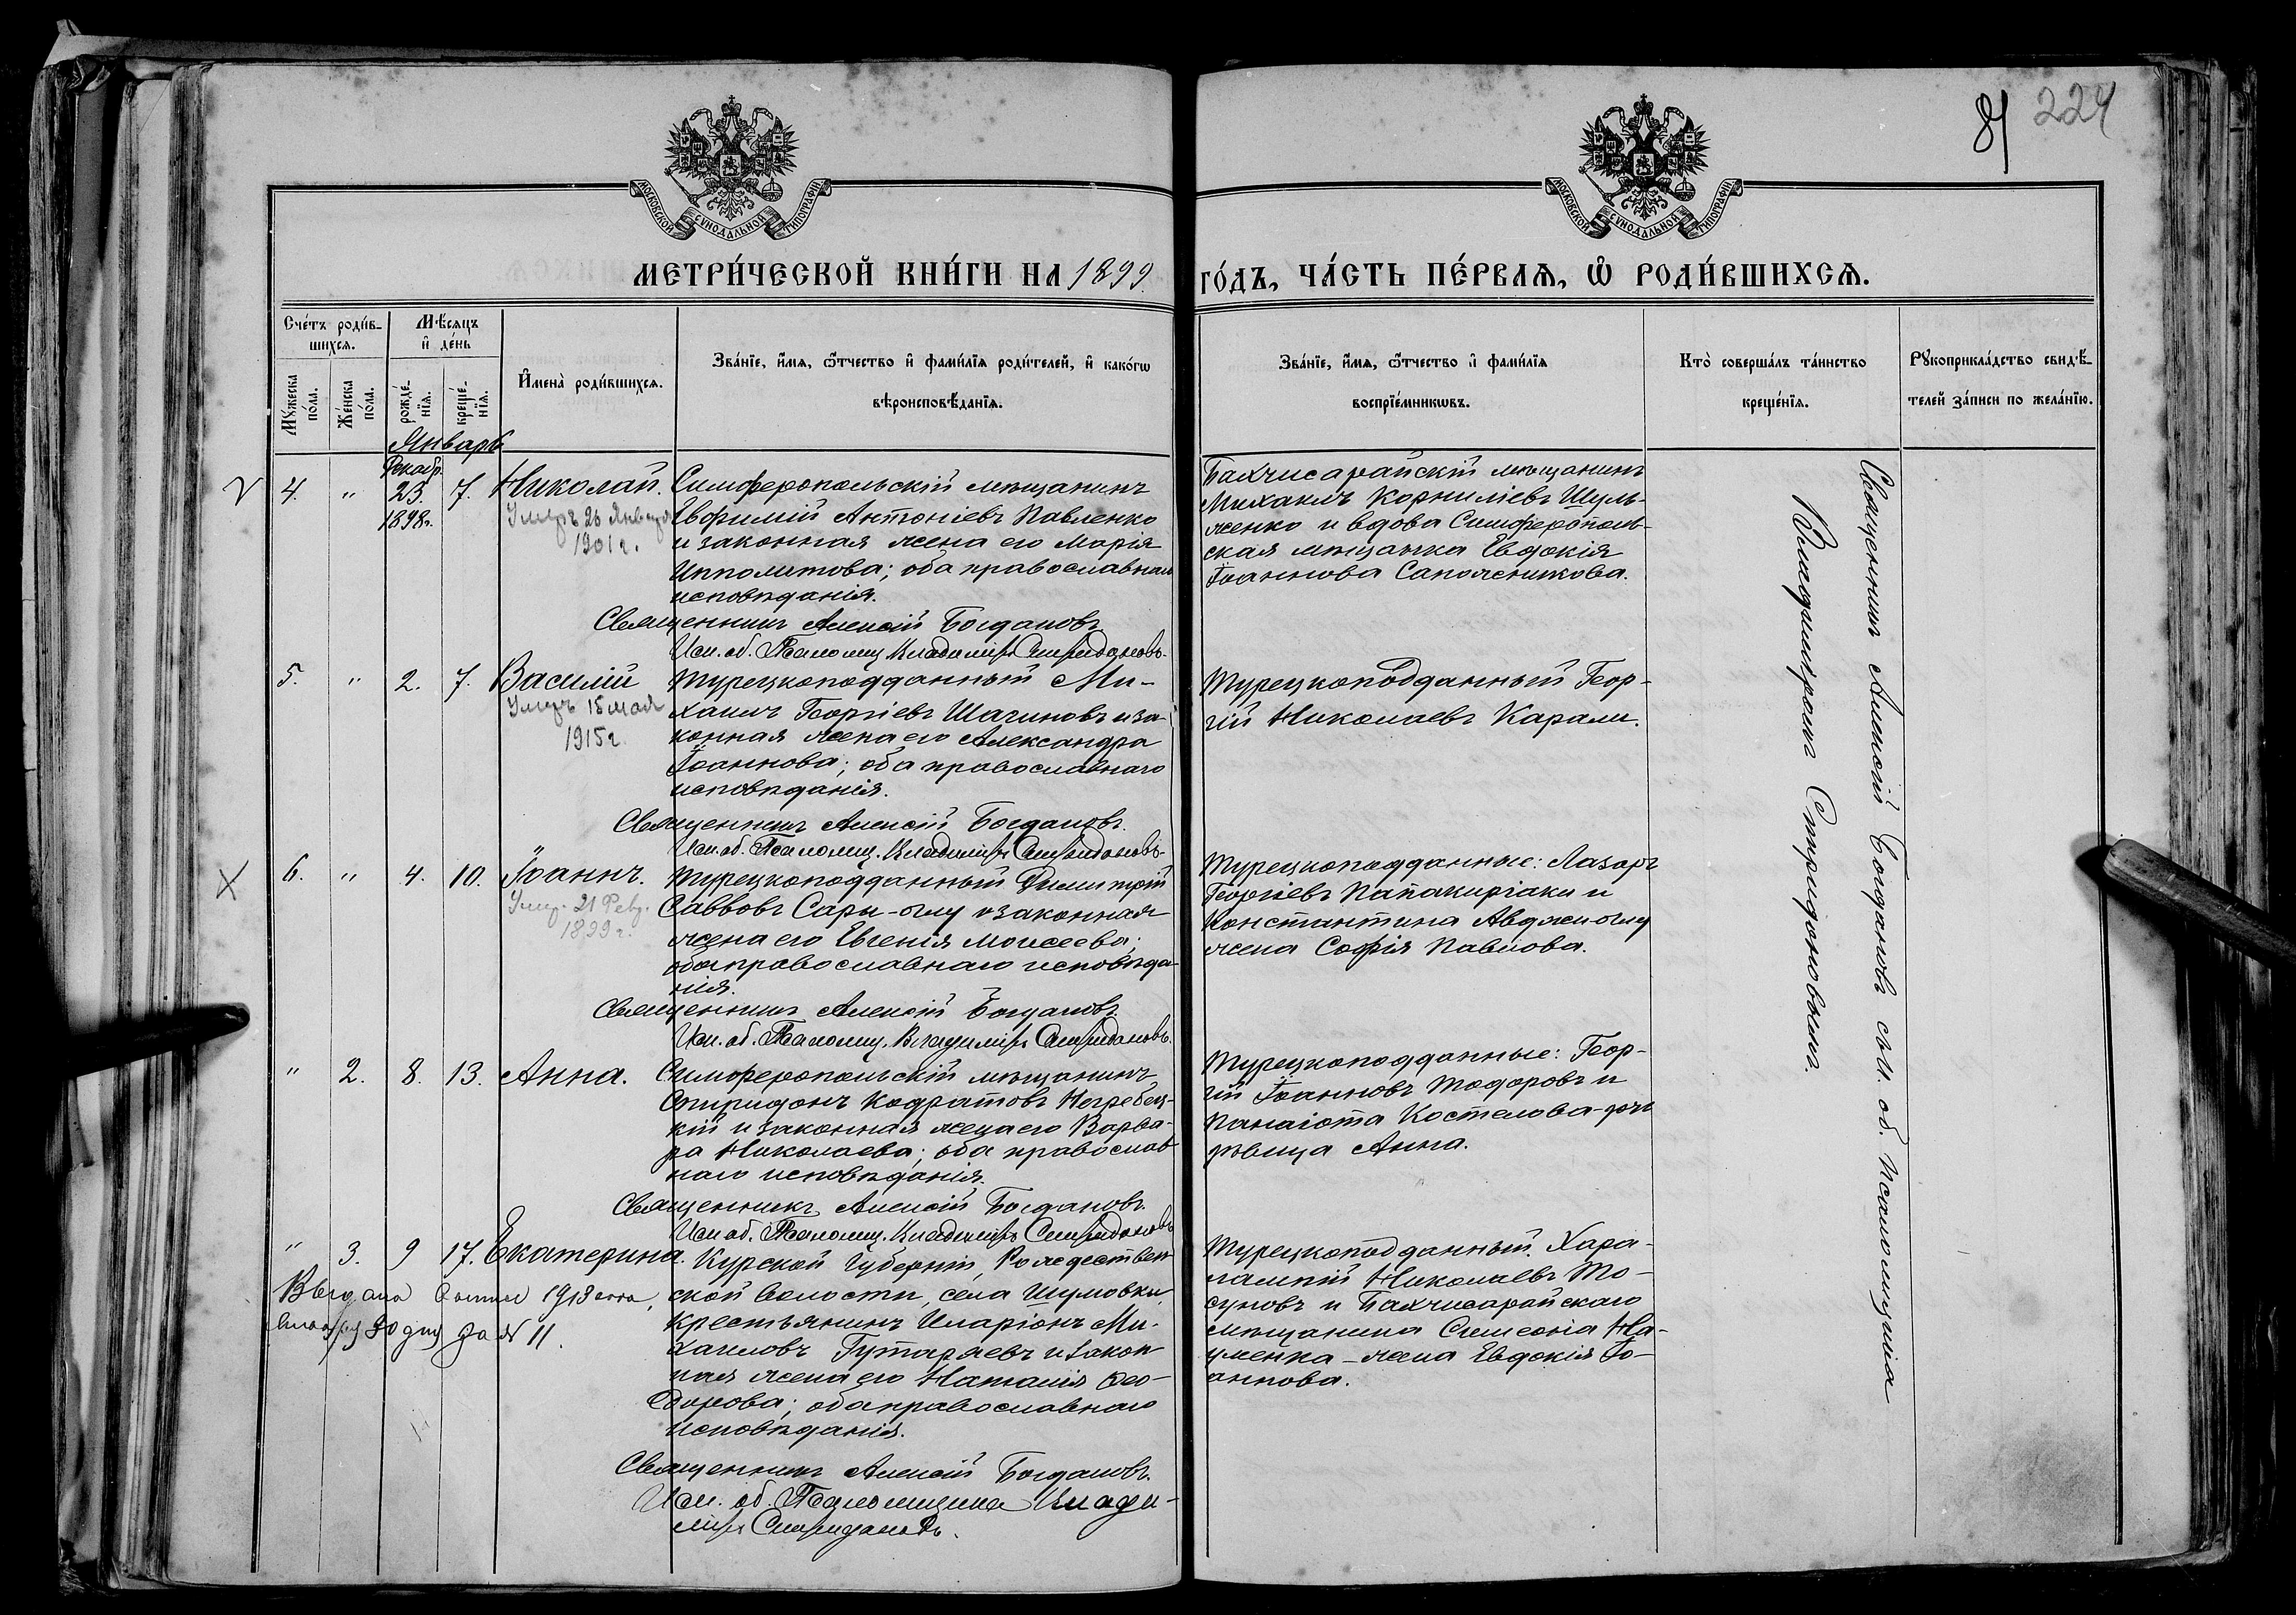 81 224
МОСКОВСКОЙ СУНОДАЛЬНОЙ ТИПОГРАФІИ
МОСКОВСКОЙ СУНОДАЛЬНОЙ ТИПОГРАФІИ
МЕТРИ́ЧЕСКОЙ КНИ́ГИ НА 1899 ГО́ДЪ, ЧА́СТЬ ПЕ́РВАЯ, Ѡ РОДИ́ВШИХСЯ.
Сче́тъ роди́в-
шихся.
Мꙋжеска по́ла.
Же́нска по́ла.
Мѣ́сяцъ
и де́нь
рожде́-
нїя.
креще́-
нїя.
Имена̀ роди́вшихся.
Зва́нїе, и́мя, ѻ́тчество и фами́лїя роди́телей, и како́гѡ
вѣроисповѣ́данїя.
Зва́нїе, и́мя, ѻ́тчество и фами́лїя
воспрїе́мникѡвъ.
Кто̀ соверша́лъ та́инство
креще́нїя.
Рꙋкоприкла́дство свидѣ́-
телей за́писи по жела́нїю.
Январь
Декабр.
4. " 23. 7. Николай.
1898г.
Умеръ 26 Января
1901 г.
Симферопольскій мѣщанинъ
Евфимій Антоніевъ Павленко
и законная жена его Марія
Ипполитова; оба православнаго
исповѣданія.
Священникъ Алексій Богдановъ
Исп. об. Псаломщ. Владиміръ Спиридоновъ.
Бахчисарайскій мѣщанинъ
Михаилъ Корниліевъ Шуль-
женко и вдова Симферополь-
ская мѣщанка Евдокія
Іоаннова Сапожникова.
5. " 2. 7. Василій
Умеръ 15 мая
1915 г.
Турецкоподданный Ми-
хаилъ Георгіевъ Шагиновъ и за-
конная жена его Александра
Іоаннова; оба православнаго
исповѣданія.
Священникъ Алексій Богдановъ.
Исп. об. Псаломщ. Владиміръ Спиридоновъ.
Турецкоподданный Геор-
гій Николаевъ Карали.
6. " 4. 10. Іоаннъ.
Умер. 21 Февр.
1899 г.
Турецкоподданный Димитрій
Саввовъ Сары-оглу и законная
жена его Евгенія Моисеева;
оба православнаго исповѣда-
нія.
Священникъ Алексій Богдановъ.
Исп. об. Псаломщ. Владиміръ Спиридоновъ.
Турецкоподданные: Лазарь
Георгіевъ Папакиріаки и
Константина Авджиоглу
жена Софія Павлова.
" 2. 8. 13. Анна.
Симферопольскій мѣщанинъ
Спиридонъ Кодратовъ Негребец-
кій и законная жена его Варва-
ра Николаева; оба православ
наго исповѣданія.
Священникъ Алексій Богдановъ.
Исп. об. Псаломщ. Владиміръ Спиридоновъ
Турецкоподданные: Геор-
гій Іоанновъ Тодоровъ и
Панаіота Костелова
дѣвица Анна.
" 3. 9 17. Екатерина.
Выдана 1918 года,
30 дня за № 11.
Курской Губерніи, Рождествен
ской волости, села Шумовки
крестьянинъ Иларіонъ Ми-
хаиловъ и закон
ная жена его Наталія Ѳео-
дорова; оба православнаго
исповѣданія.
Священникъ Алексій Богдановъ.
Исп. об. Псаломщика Влади-
міръ Спиридоновъ.
Турецкоподданный Хара-
лампій Николаевъ То-
суновъ и Бахчисарайскаго
мѣщанина Симеона На-
уменка - жена Евдокія Іо-
аннова.
Священникъ Алексій Богдановъ съ И. об. Псаломщика
Владиміромъ Спиридоновымъ.